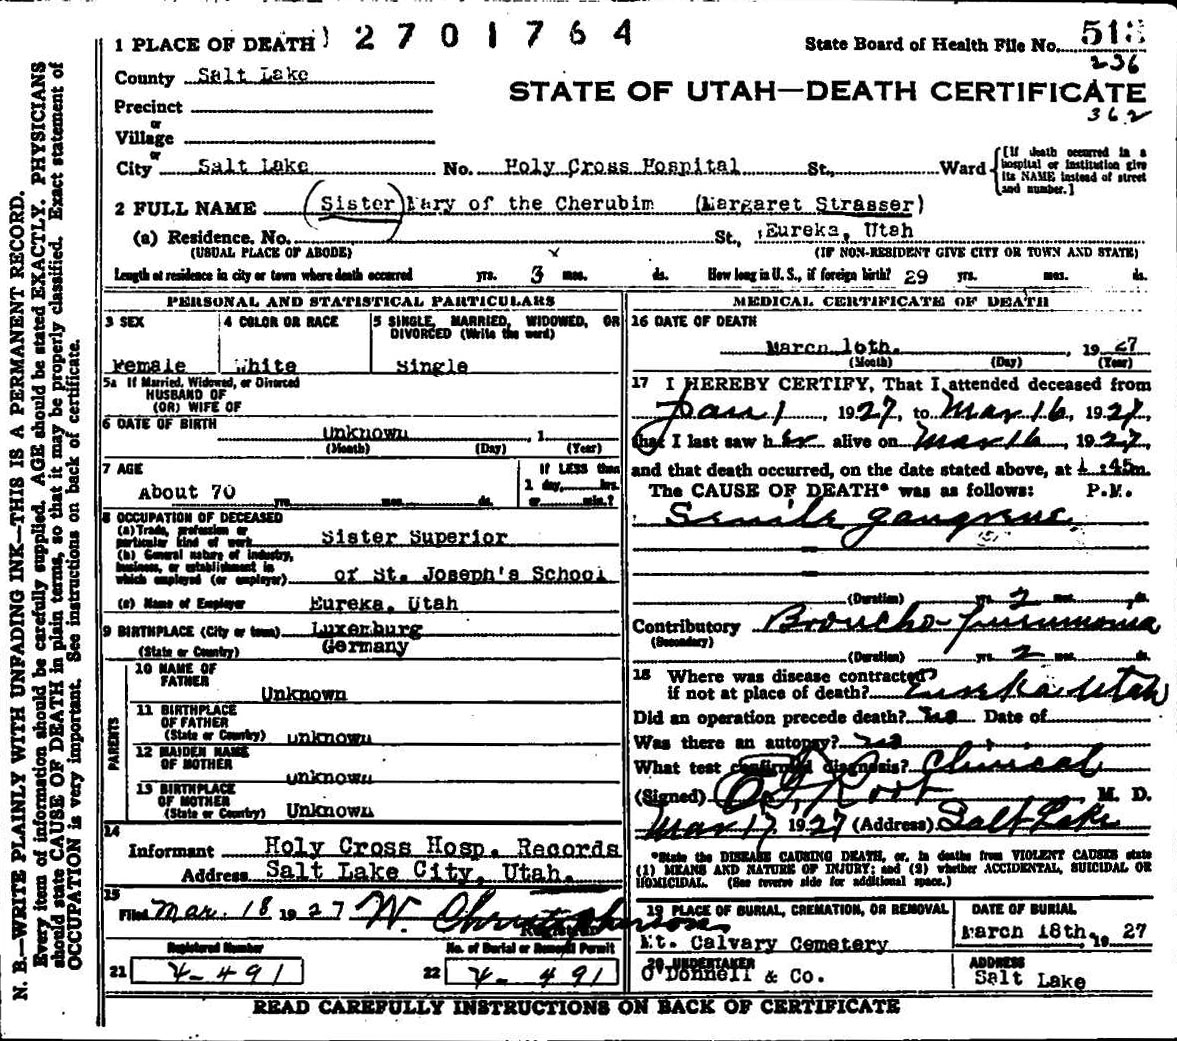 1 PLACE OF DEATH) 2 7 0 1 7 6 4
State Board of Health File No. 513
236
County Salt Lake
STATE OF UTAH—DEATH CERTIFICATE
362
Precinct
or
Village
or
City Salt Lake No. Holy Cross Hospital St., Ward
[If death occurred in a hospital or institution give its NAME instead of street and number.]
2 FULL NAME (Sister) Mary of the Cherubim (Margaret Strasser)
(a) Residence. No. St., Eureka, Utah
(USUAL PLACE OF ABODE) (IF NON-RESIDENT GIVE CITY OR TOWN AND STATE)
Length of residence in city or town where death occurred yrs. 3 mos. ds. How long in U. S., if foreign birth? 29 yrs. mos. ds.
PERSONAL AND STATISTICAL PARTICULARS
3 SEX
Female
4 COLOR OR RACE
White
5 SINGLE, MARRIED, WIDOWED, OR
DIVORCED (Write the word)
Single
5a If Married, Widowed, or Divorced
HUSBAND OF
(OR) WIFE OF
6 DATE OF BIRTH Unknown , 1
(Month) (Day) (Year)
7 AGE
About 70 yrs. mos. ds.
If LESS than
1 day, hrs.
or min.?
8 OCCUPATION OF DECEASED
(a) Trade, profession or
particular kind of work Sister Superior
(b) General nature of industry,
business, or establishment in
which employed (or employer) of St. Joseph's School
(c) Name of Employer Eureka, Utah
9 BIRTHPLACE (City or town) Luxenburg
(State or Country) Germany
PARENTS
10 NAME OF
FATHER Unknown
11 BIRTHPLACE
OF FATHER
(State or Country) unknown
12 MAIDEN NAME
OF MOTHER unknown
13 BIRTHPLACE
OF MOTHER
(State or Country) Unknown
14
Informant Holy Cross Hosp. Records
Address Salt Lake City, Utah.
15
Filed Mar. 18 1927 W. Christopherson
Registrar
Registered Number
21 4-491
No. of Burial or Removal Permit
22 4-491
MEDICAL CERTIFICATE OF DEATH
16 DATE OF DEATH
March 16th. , 1927
(Month) (Day) (Year)
17 I HEREBY CERTIFY, That I attended deceased from
Jan 1 , 1927, to Mar 16, 1927,
that I last saw her alive on Mar 16 , 1927,
and that death occurred, on the date stated above, at 1:45m.
The CAUSE OF DEATH* was as follows: P.M.
Senile gangrene
(Duration) yrs. 2 mos. ds.
Contributory Broncho-pneumonia
(Secondary)
(Duration) yrs. 2 mos. ds.
18 Where was disease contracted
if not at place of death? Eureka Utah
Did an operation precede death? no Date of
Was there an autopsy? no
What test confirmed diagnosis? Clinical
(Signed) Root M. D.
Mar 17, 1927 (Address) Salt Lake
*State the DISEASE CAUSING DEATH, or, in deaths from VIOLENT CAUSES state
(1) MEANS AND NATURE OF INJURY; and (2) whether ACCIDENTAL, SUICIDAL OR
HOMICIDAL. (See reverse side for additional space.)
19 PLACE OF BURIAL, CREMATION, OR REMOVAL
Mt. Calvary Cemetery
DATE OF BURIAL
March 18th, 1927
20 UNDERTAKER
O'Donnell & Co.
ADDRESS
Salt Lake
READ CAREFULLY INSTRUCTIONS ON BACK OF CERTIFICATE
N. B.—WRITE PLAINLY WITH UNFADING INK—THIS IS A PERMANENT RECORD.
Every item of information should be carefully supplied. AGE should be stated EXACTLY. PHYSICIANS
should state CAUSE OF DEATH in plain terms, so that it may be properly classified. Exact statement of
OCCUPATION is very important. See instructions on back of certificate.